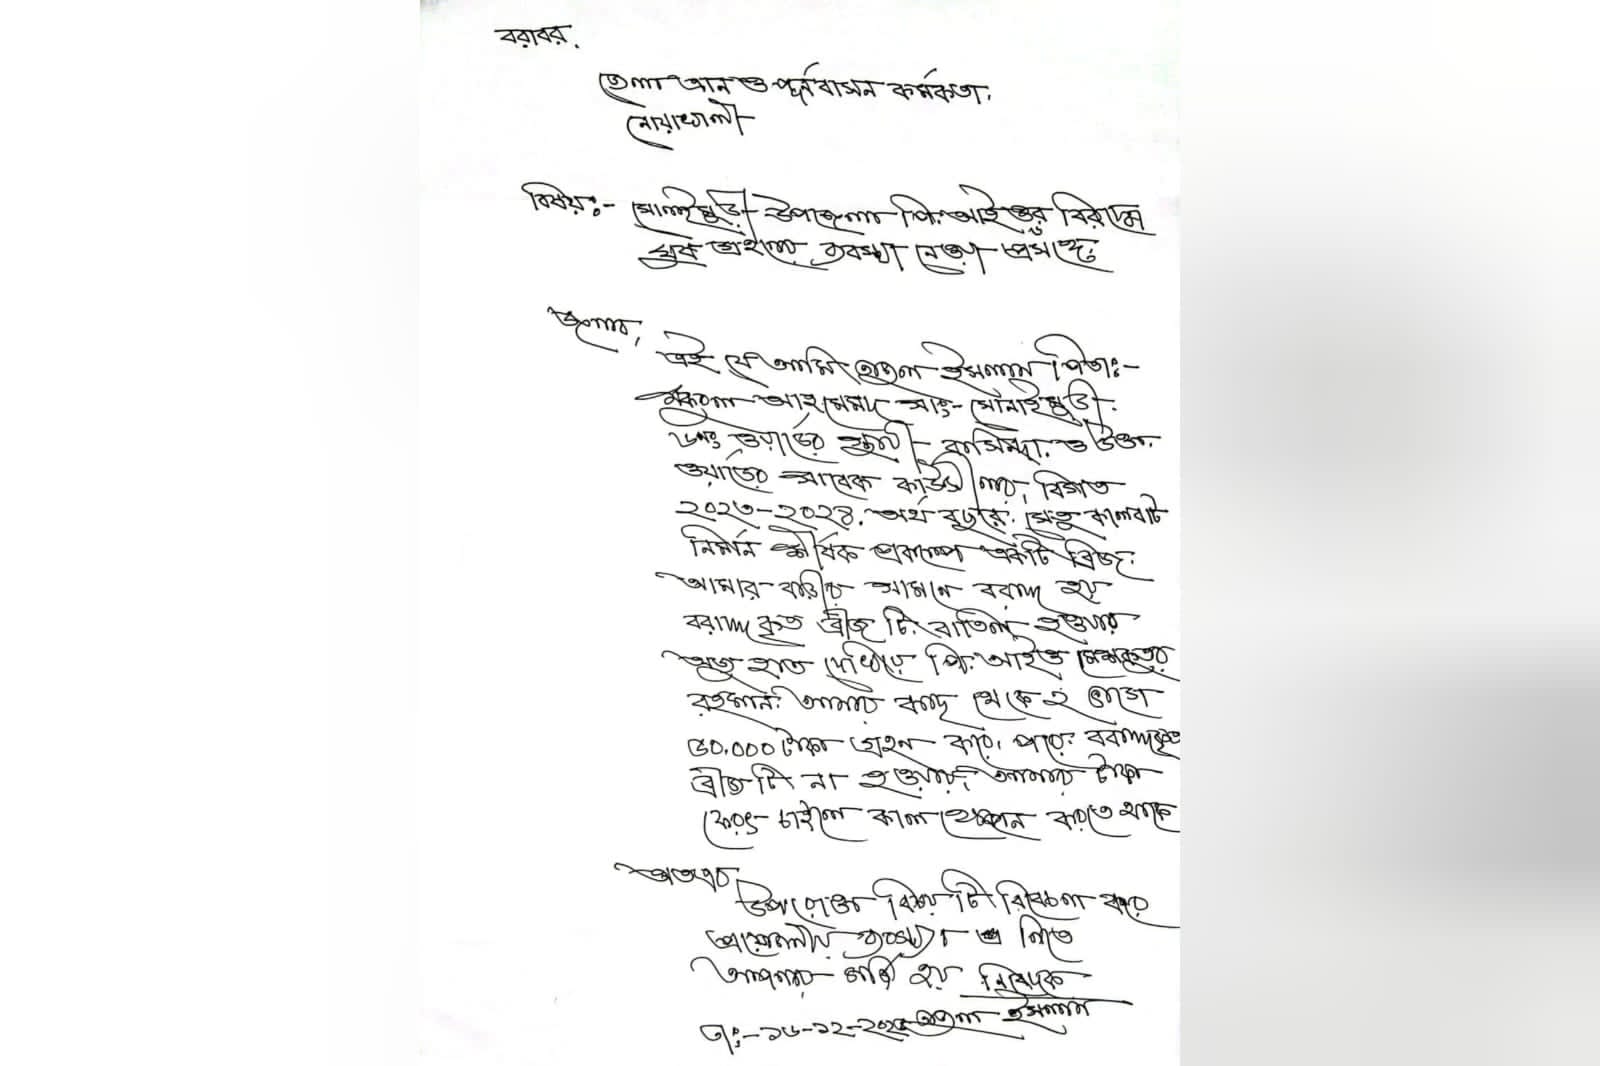 বরাবর,
জেলা ত্রান ও পূর্নবাসন কর্মকতা,
নোয়াখালী
বিষয়ঃ- সোনাইমুড়ী উপজেলা পি,আইওর বিরুদ্ধে
ঘুষ গ্রহনের ব্যবস্থা নেওয়া প্রসঙ্গে,
জনাব,
এই যে আমি ইসলাম পিতাঃ-
আহমেদ সাং- সোনাইমুড়ী,
৬নং ওয়ার্ডের স্থায়ী বাসিন্দা, ও উক্ত
ওয়ার্ডের সাবেক কাউন্সীলর, বিগত
২০২৩-২০২৪, অর্থ বছরে, সেতু কালবাট
নির্মান শীর্ষক প্রকল্পে একটি ব্রিজ,
আমার বাড়ীর সামনে বরাদ্দ হয়
বরাদ্দকৃত ব্রীজ টি, বাতিল হওয়ার
অজু হাত দেখিয়ে পি, আইও
রহমান, আমার কাছ থেকে ২ ভাগে
৫০,০০০ টাকা গ্রহন করে, পরে, বরাদ্দকৃত
ব্রীজটি না হওয়ায়, আমার টাকা
ফেরৎ চাইলে কাল ক্ষেপন করতে থাকে
অতএব,
উপরোক্ত বিষয় টি বিবেচনা করে
প্রয়োজনীয় ব্যবস্থা নিতে
আপনার মর্জি হয় নিবেদক
তাং-১৬-১২-২০২৫ ইসলাম